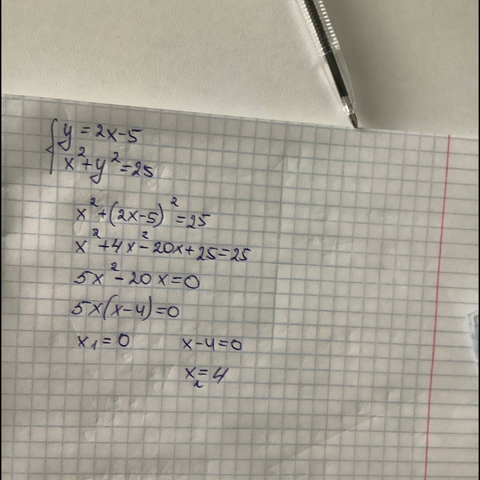 {y = 2x-5
x²+y²=25
x²+(2x-5)²=25
x²+4x²-20x+25=25
5x²-20x=0
5x(x-4)=0
x₁=0 x-4=0
x₂=4